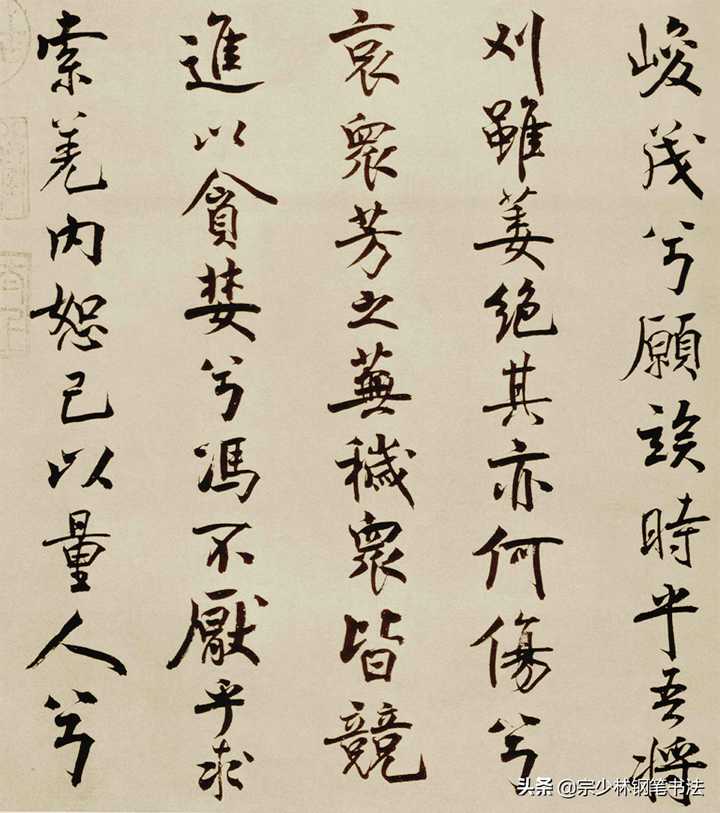 峻茂兮願竢時乎吾將
刈雖萎絕其亦何傷兮
哀眾芳之蕪穢眾皆競
進以貪婪兮馮不厭乎求
索羌內恕己以量人兮
头条 @宗少林钢笔书法